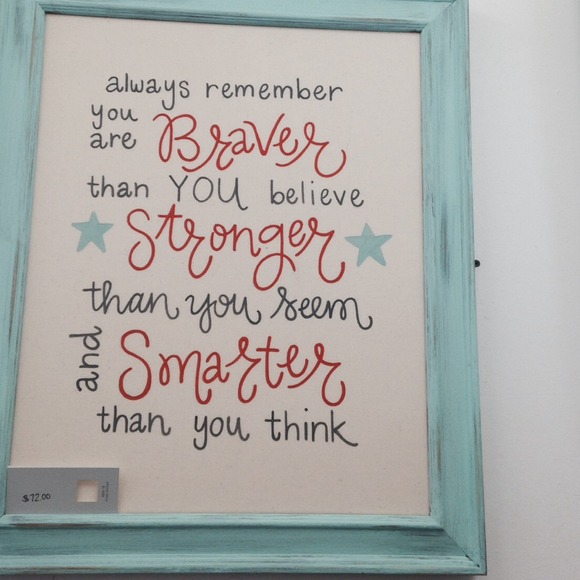 always remember
you
are Braver
than YOU believe
Stronger
than you seem
and Smarter
than you think
$72.00